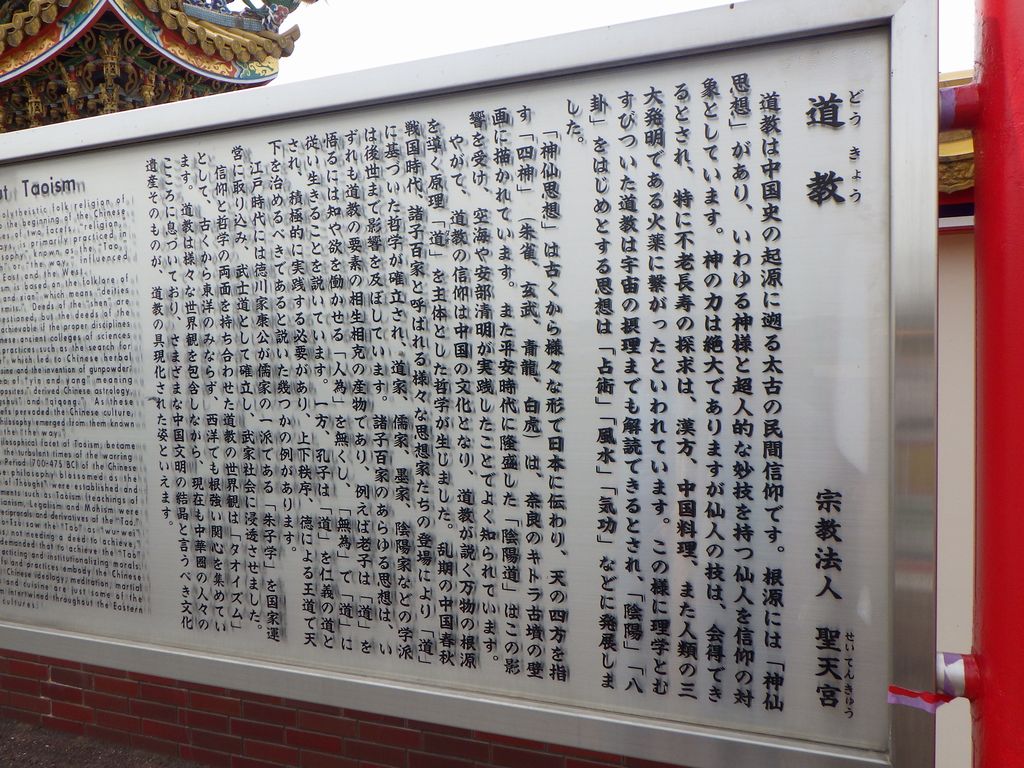 道教
どうきょう
宗教法人 聖天宮
せいてんきゅう
道教は中国史の起源に遡る太古の民間信仰です。根源には「神仙
思想」があり、いわゆる神様と超人的な妙技を持つ仙人を信仰の対
象としています。神の力は絶大でありますが仙人の技は、会得でき
るとされ、特に不老長寿の探求は、漢方、中国料理、また人類の三
大発明である火薬に繋がったといわれています。この様に理学とむ
すびついた道教は宇宙の摂理までも解読できるとされ、「陰陽」「八
卦」をはじめとする思想は「占術」「風水」「気功」などに発展しま
した。
「神仙思想」は古くから様々な形で日本に伝わり、天の四方を指
す「四神」(朱雀、玄武、青龍、白虎)は、奈良のキトラ古墳の壁
画に描かれています。また平安時代に隆盛した「陰陽道」はこの影
響を受け、空海や安部清明が実践したことでよく知られています。
やがて、道教の信仰は中国の文化となり、道教が説く万物の根源
を導く原理「道」を主体とした哲学が生じました。乱期の中国春秋
戦国時代、諸子百家と呼ばれる様々な思想家たちの登場により「道」
に基づいた哲学が確立され、道家、儒家、墨家、陰陽家などの学派
は後世まで影響を及ぼしています。諸子百家のあらゆる思想は、い
ずれも道教の要素の相生相克の産物であり、例えば老子は「道」を
悟るには知や欲を働かせる「人為」を無くし、「無為」で「道」に
従い生きることを説いています。一方、孔子は「道」を仁義の道と
され、積極的に実践する必要があり、上下秩序、徳による王道で天
下を治めるべきであると説いた幾つかの例があります。
江戸時代には徳川家康公が儒家の一派である「朱子学」を国家運
営に取り込み、武士道として確立し、武家社会に浸透させました。
信仰と哲学の両面を持ち合わせた道教の世界観は「タオイズム」
として、古くから東洋のみならず、西洋でも根強い関心を集めてい
ます。道教は様々な世界観を包含しながら、現在も中華圏の人々の
こころに息づいており、さまざまな中国文明の結晶と言うべき文化
遺産そのものが、道教の具現化された姿といえます。
Taoism
olytheistic folk religion of
the beginning of the Chinese
two facets, "religion"
is primarily practiced in
or "the way," influenced
East and the West.
is based on the folklore of
and xian" which mean, "deities
Deeds of the "shen" are
but the deeds of the
achievable if the proper disciplines
ancient colleges of sciences
practices such as the search for
which led to Chinese herbal
and the invention of gunpowder
of "yin and yang" meaning
derived Chinese astrology,
and "qigong." As these
pervaded the Chinese culture,
philosophy emerged from them known
"the way."
philosophical facet of Taoism, became
the turbulent times of the warring
Period: (700-475 BC) of the Chinese
philosophy blossomed where
Thought" were established and
such as Taoism (teachings of
Legalism and Mohism were
derivatives of the "Tao."
saw the "Tao" as "wu-wei
not needing a deed to achieve,"
demanded that to achieve the "Tao"
practicing and institutionalizing morals.
and practices embody the Chinese
Chinese ideology; meditation, martial
and cuisine are just some of the
intertwined throughout the Eastern
cultures.